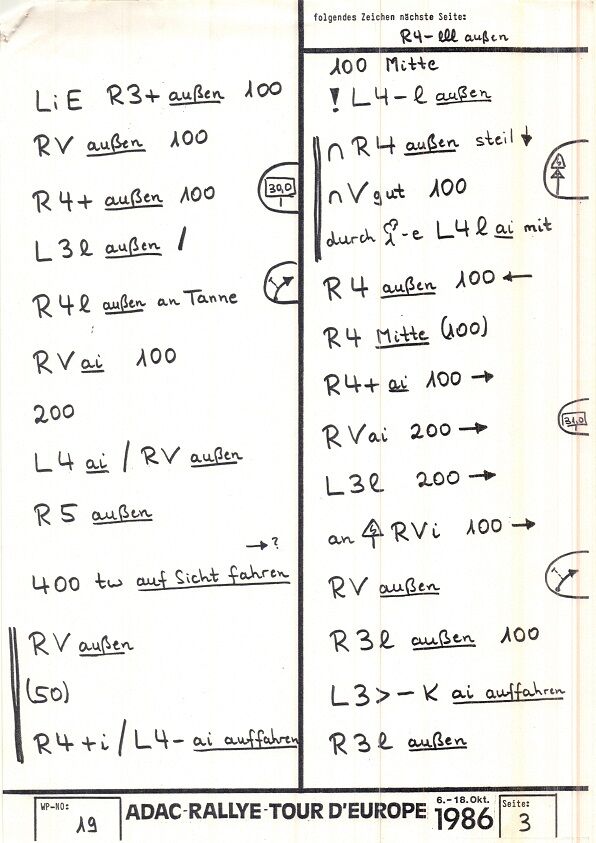 LiE R3+ außen 100
RV außen 100
R4+ außen 100
30,0
L3l außen /
R4l außen an Tanne
RV ai 100
200
L4 ai / RV außen
R5 außen
→ ?
400 tw auf Sicht fahren
RV außen
(50)
R4+i / L4- ai auffahren
folgendes Zeichen nächste Seite:
R4-lll außen
100 Mitte
! L4-l außen
∩ R4 außen steil ↓
∩ V gut 100
durch -e L4l ai mit
R4 außen 100 ←
R4 Mitte (100)
R4+ ai 100 →
RV ai 200 →
31,0
L3l 200 →
an RVi 100 →
RV außen
R3l außen 100
L3>-K ai auffahren
R3l außen
WP-NO: 19
ADAC-RALLYE-TOUR D'EUROPE
6.-18.Okt. 1986
Seite: 3